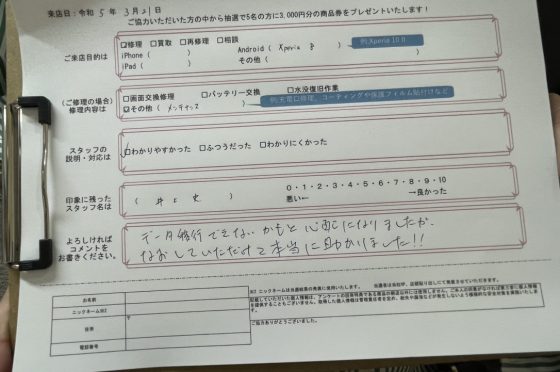 来店日:令和 5 年 3 月 21 日
ご協力いただいた方の中から抽選で5名の方に3,000円分の商品券をプレゼントいたします!
ご来店目的は
☑修理 □買取 □再修理 □相談
iPhone ( ) Android ( Xperia 8 ) 例:Xperia 10 Ⅱ
iPad ( ) その他 ( )
(ご修理の場合)
修理内容は
□画面交換修理 □バッテリー交換 □水没復旧作業
☑その他 ( メンテナンス ) 例:充電口修理、コーティングや保護フィルム貼付けなど
スタッフの
説明・対応は
☑わかりやすかった □ふつうだった □わかりにくかった
印象に残った
スタッフ名は
( 井上 ) 0・1・2・3・4・5・6・7・8・9・10
悪い← →良かった
よろしければ
コメントを
お書きください。
データ移行できないかもと心配になりましたが、
なおしていただけて本当に助かりました!!
お名前
ニックネーム※2
住所
〒
電話番号
※2 ニックネームは当選結果の発表に使用いたします。
ご協力ありがとうございました。